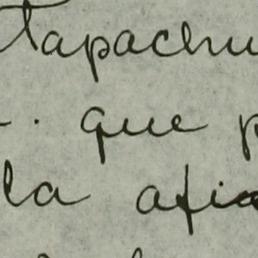 Tapachu
. que p
la afi